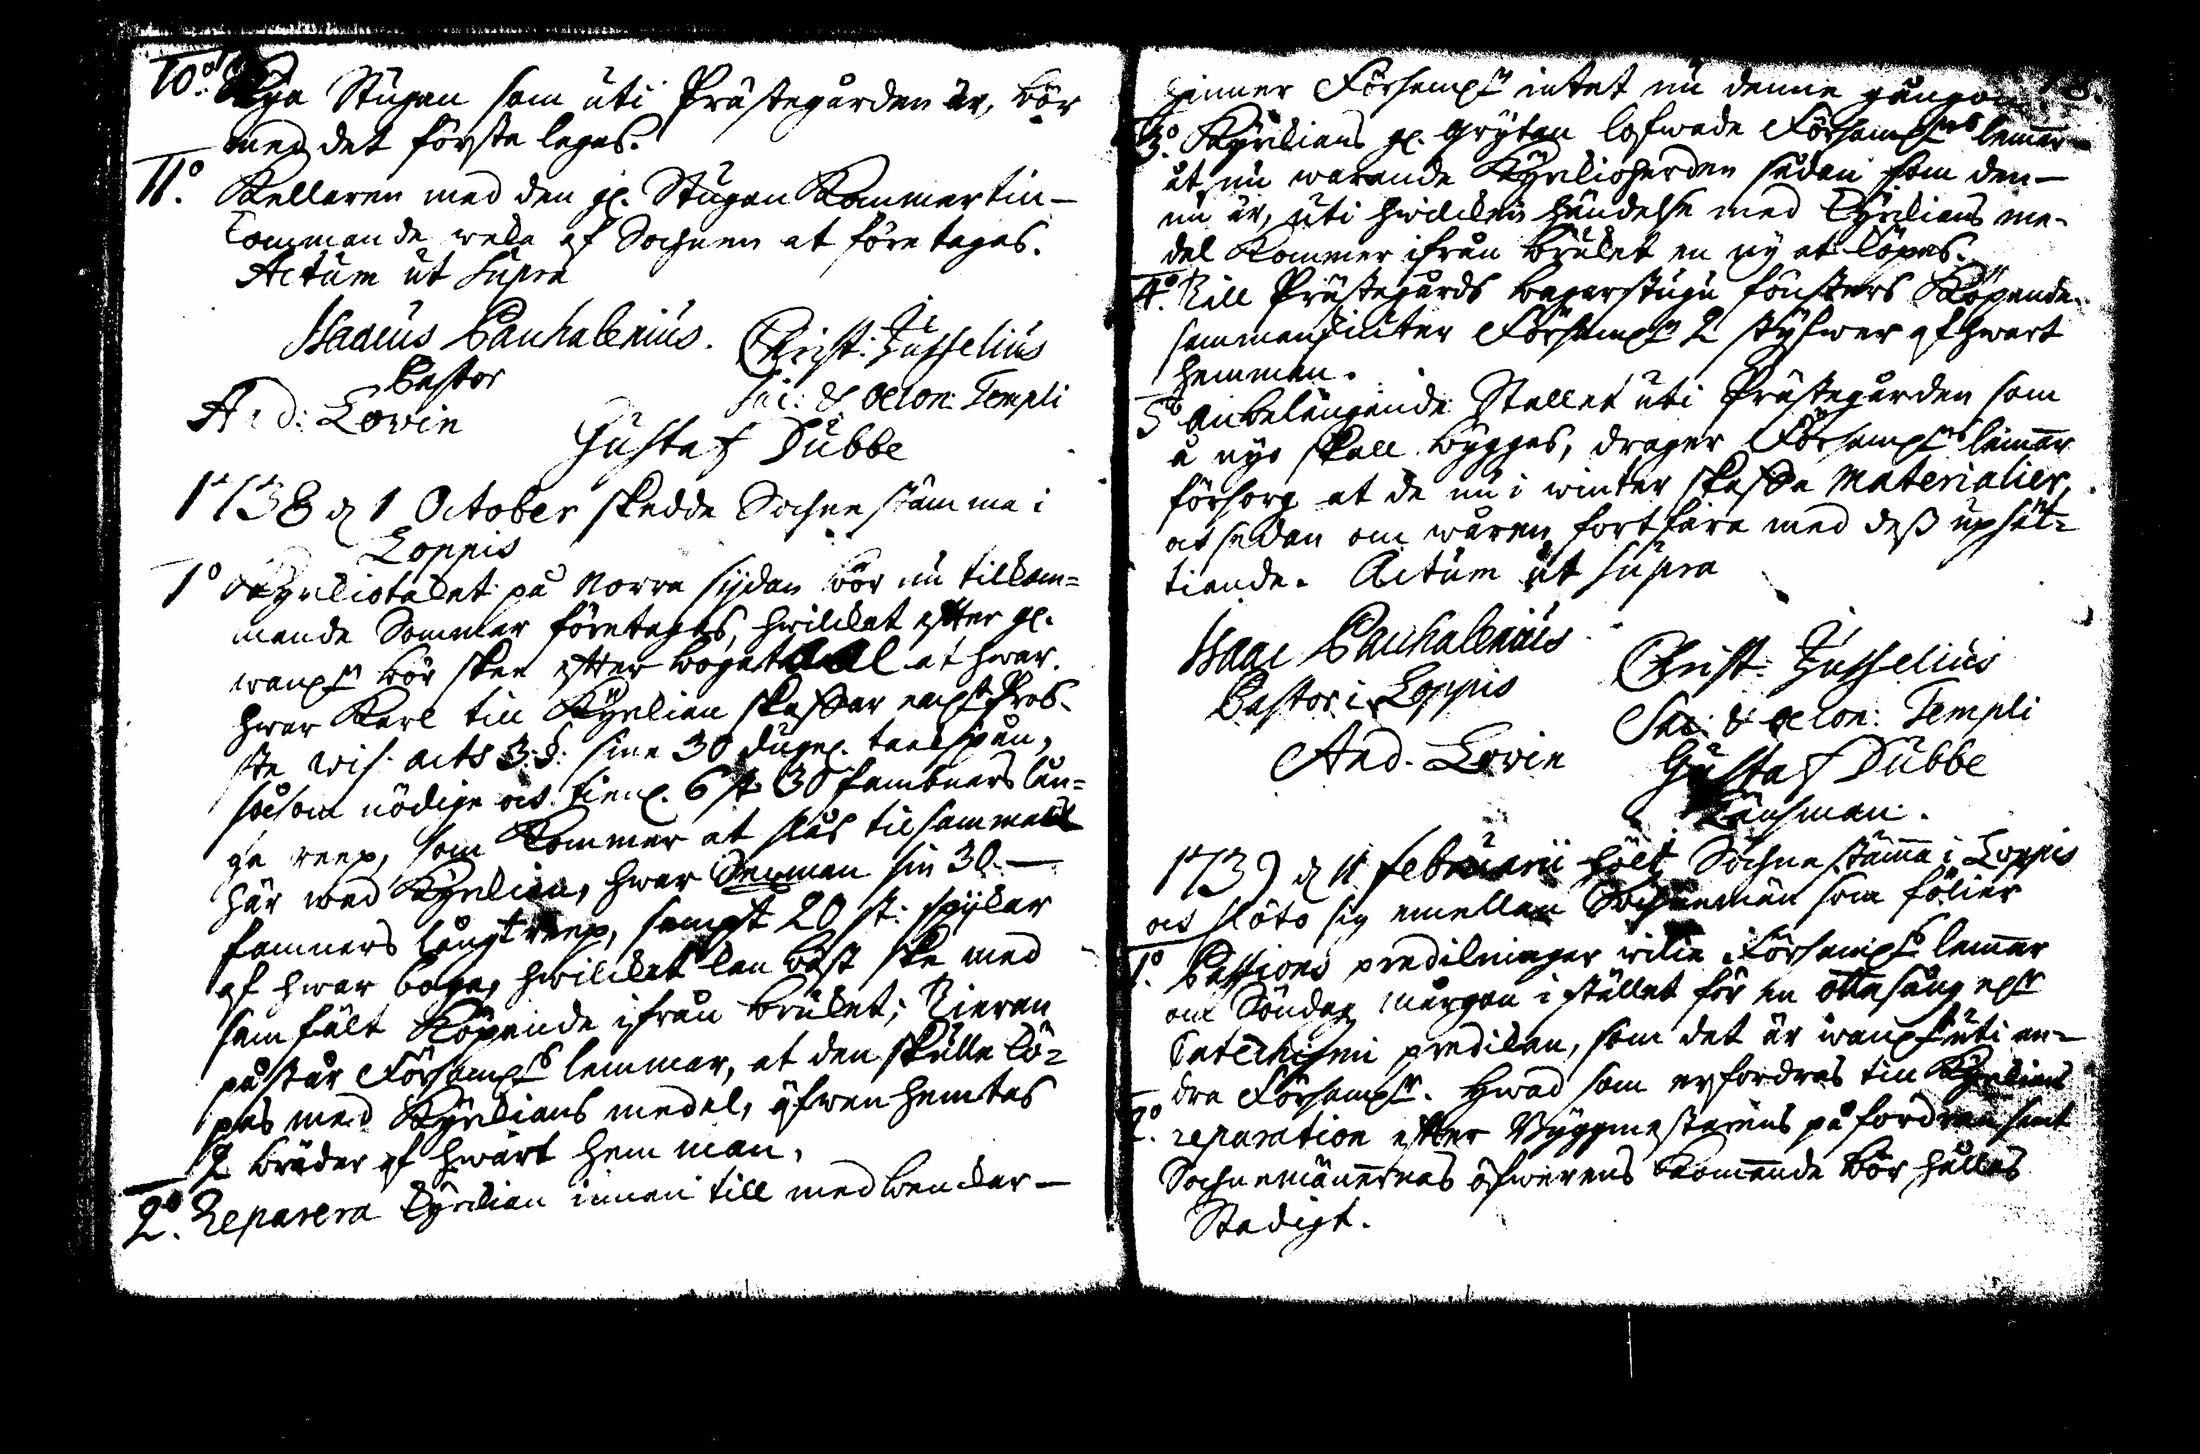 10:o Nya Stugan som uti Prästegården är, bör
med det första lagas.
11o. Kellaren med den gl. Stugan Kommer till-
kommande wela af Sochnen at företagas.
Actum ut supra
Isaacus Pauhalenius.
Pastor
Christ: Jusselius
Sac: & Oecon: Templi
And: Lovin
Gustaf Dubbe
1738 d 1 October skedde Sochnestämma i
Loppis
1o Kyrkiotaket på Norra sijdan bör nu tillkom=
mande Sommar företagas, hwilcket efter gl.
wanl:n bör skee efter bogatahl at hwar.
hwar Karl till Kyrkian skaffar enl:t Prob-
ste wis. acts 3. §. sine 30 dugel. taakspån,
såsom nödige ock tienl. 6 st 30 famnars lån=
ga reep, som Kommer at slås tilsammans
här wed Kyrkian, hwar Sexman sin 30 —
famners långt reep, sampt 20 st: spijkar
af hwar boga, hwilcket kan bäst ske med
samfält Köpande ifrån bruket; Tieran
påstår Församl:s lemmar, at den skulle kö=
pas med Kyrkians medel, äfwen hemtas
2 bräder af hwart hemman.
2o. Reparera Kyrkian innan till med benckar —
hinner Församl:n intet nu denne gången
3o. Kyrkians gl. Grytan lofwade Församl:ns lemmar
åt nu warande Kyrkioherden sådan som den —
nu är, uti hwilcken händelse med Kyrkians me-
del Kommer ifrån bruket en ny at köpas.
4o. Till Prästegårds bagarstugu fönsters Köpande
sammanskiuter Församl:n 2 styfwer af hwart
hemman.
5o Anbelangande Stallet uti Prästegården som
å nyo skall byggas, drager Församl:ns lemmar
försorg at de nu i winter skaffa Materialier,
ock sedan om wåren fortfara med dess upsät=
tiande. Actum ut supra
Isaac Pauhalenius
Pastor i Loppis
Christ: Jusselius
Sac: & Oecon: Templi
And. Lovin
Gustaf Dubbe
Länsman.
1739 d 11 Februarii hölt Sochnestämma i Loppis
ock slöto sig emellan Sochnemän som fölier
1o. Passions predikningar wilia Församl:s lemmar
om Söndag morgon i stället för en Ottesång el:r
Catechismi predikan, som det är wanl:t uti an-
dra Församl:r. Hwad som erfordras till Kyrkians
2o. reparation efter Byggmästarens påfordran samt
Sochnemännernas öfwerens Kommande bör hållas
Stadigt.